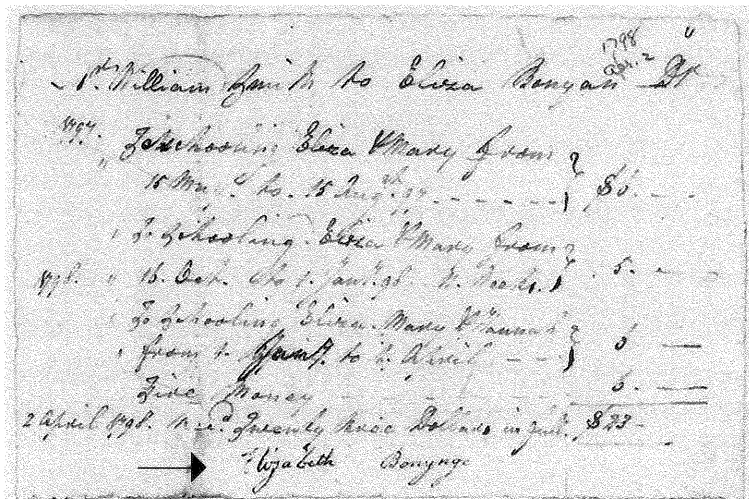 1798
Apr. 2
William Smith to Eliza Bonyan Dr
1797. To Schooling Eliza & Mary from
15 May to 15 Augst 97 $6.
To Schooling Eliza & Mary from
1798. 16 Oct. to 1. Jany. 98 5.
To Schooling Eliza Mary & Hannah
from 1. Jany. to 2. April 6
Fire Money 6.
2 April 1798. Twenty three Dollars in full. $23
Elizabeth Bonynge